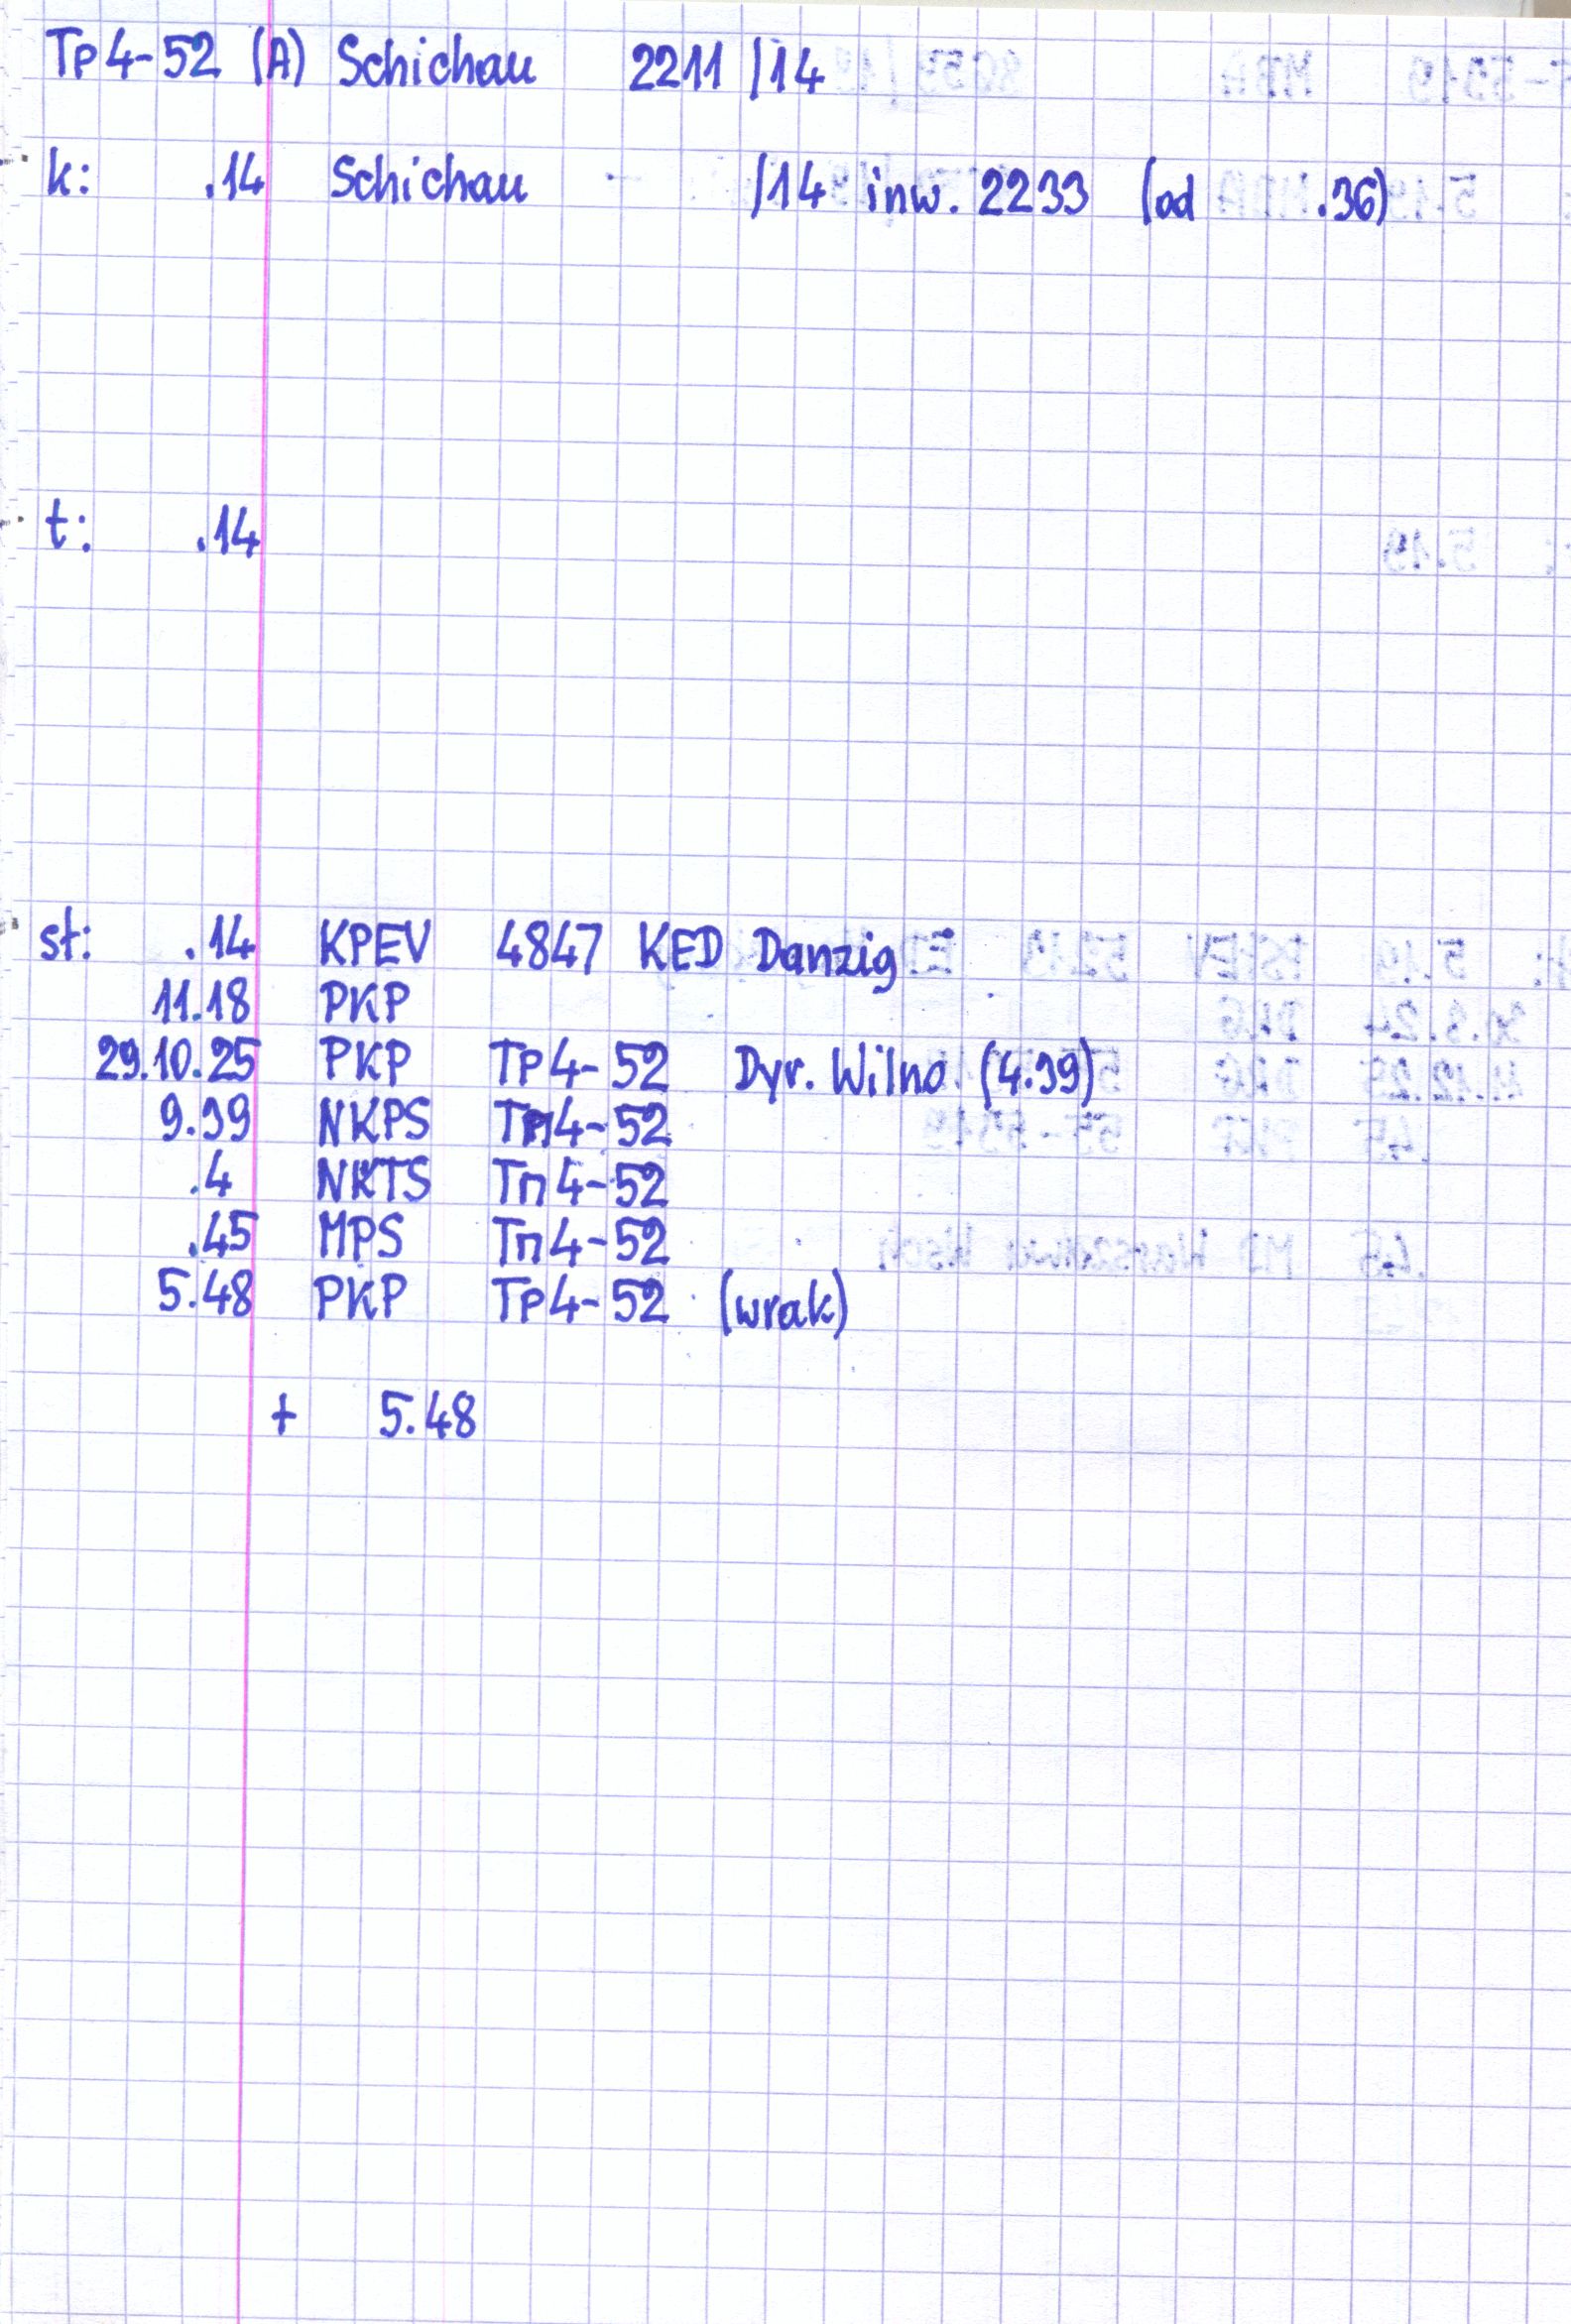 Tp4-52 (A) Schichau 2211 /14
k: .14 Schichau - /14 inw. 2233 (od .36)
t: .14
st: .14 KPEV 4847 KED Danzig
11.18 PKP
29.10.25 PKP Tp4-52 Dyr. Wilno (4.39)
9.39 NKPS Тп4-52
.4 NKTS Тп4-52
.45 MPS Тп4-52
5.48 PKP Tp4-52 (wrak)
+ 5.48